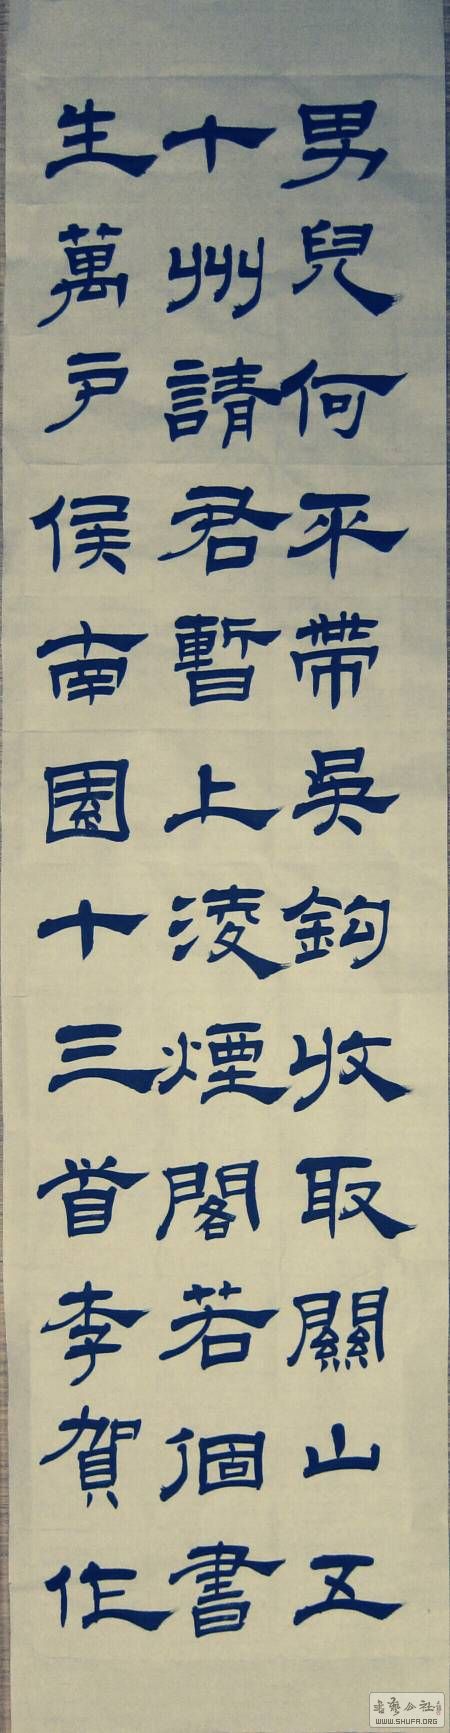 男兒何不帶吳鈎收取關山五
十州請君暫上淩煙閣若個書
生萬戶侯南園十三首李賀作
书艺公社
WWW.SHUFA.ORG